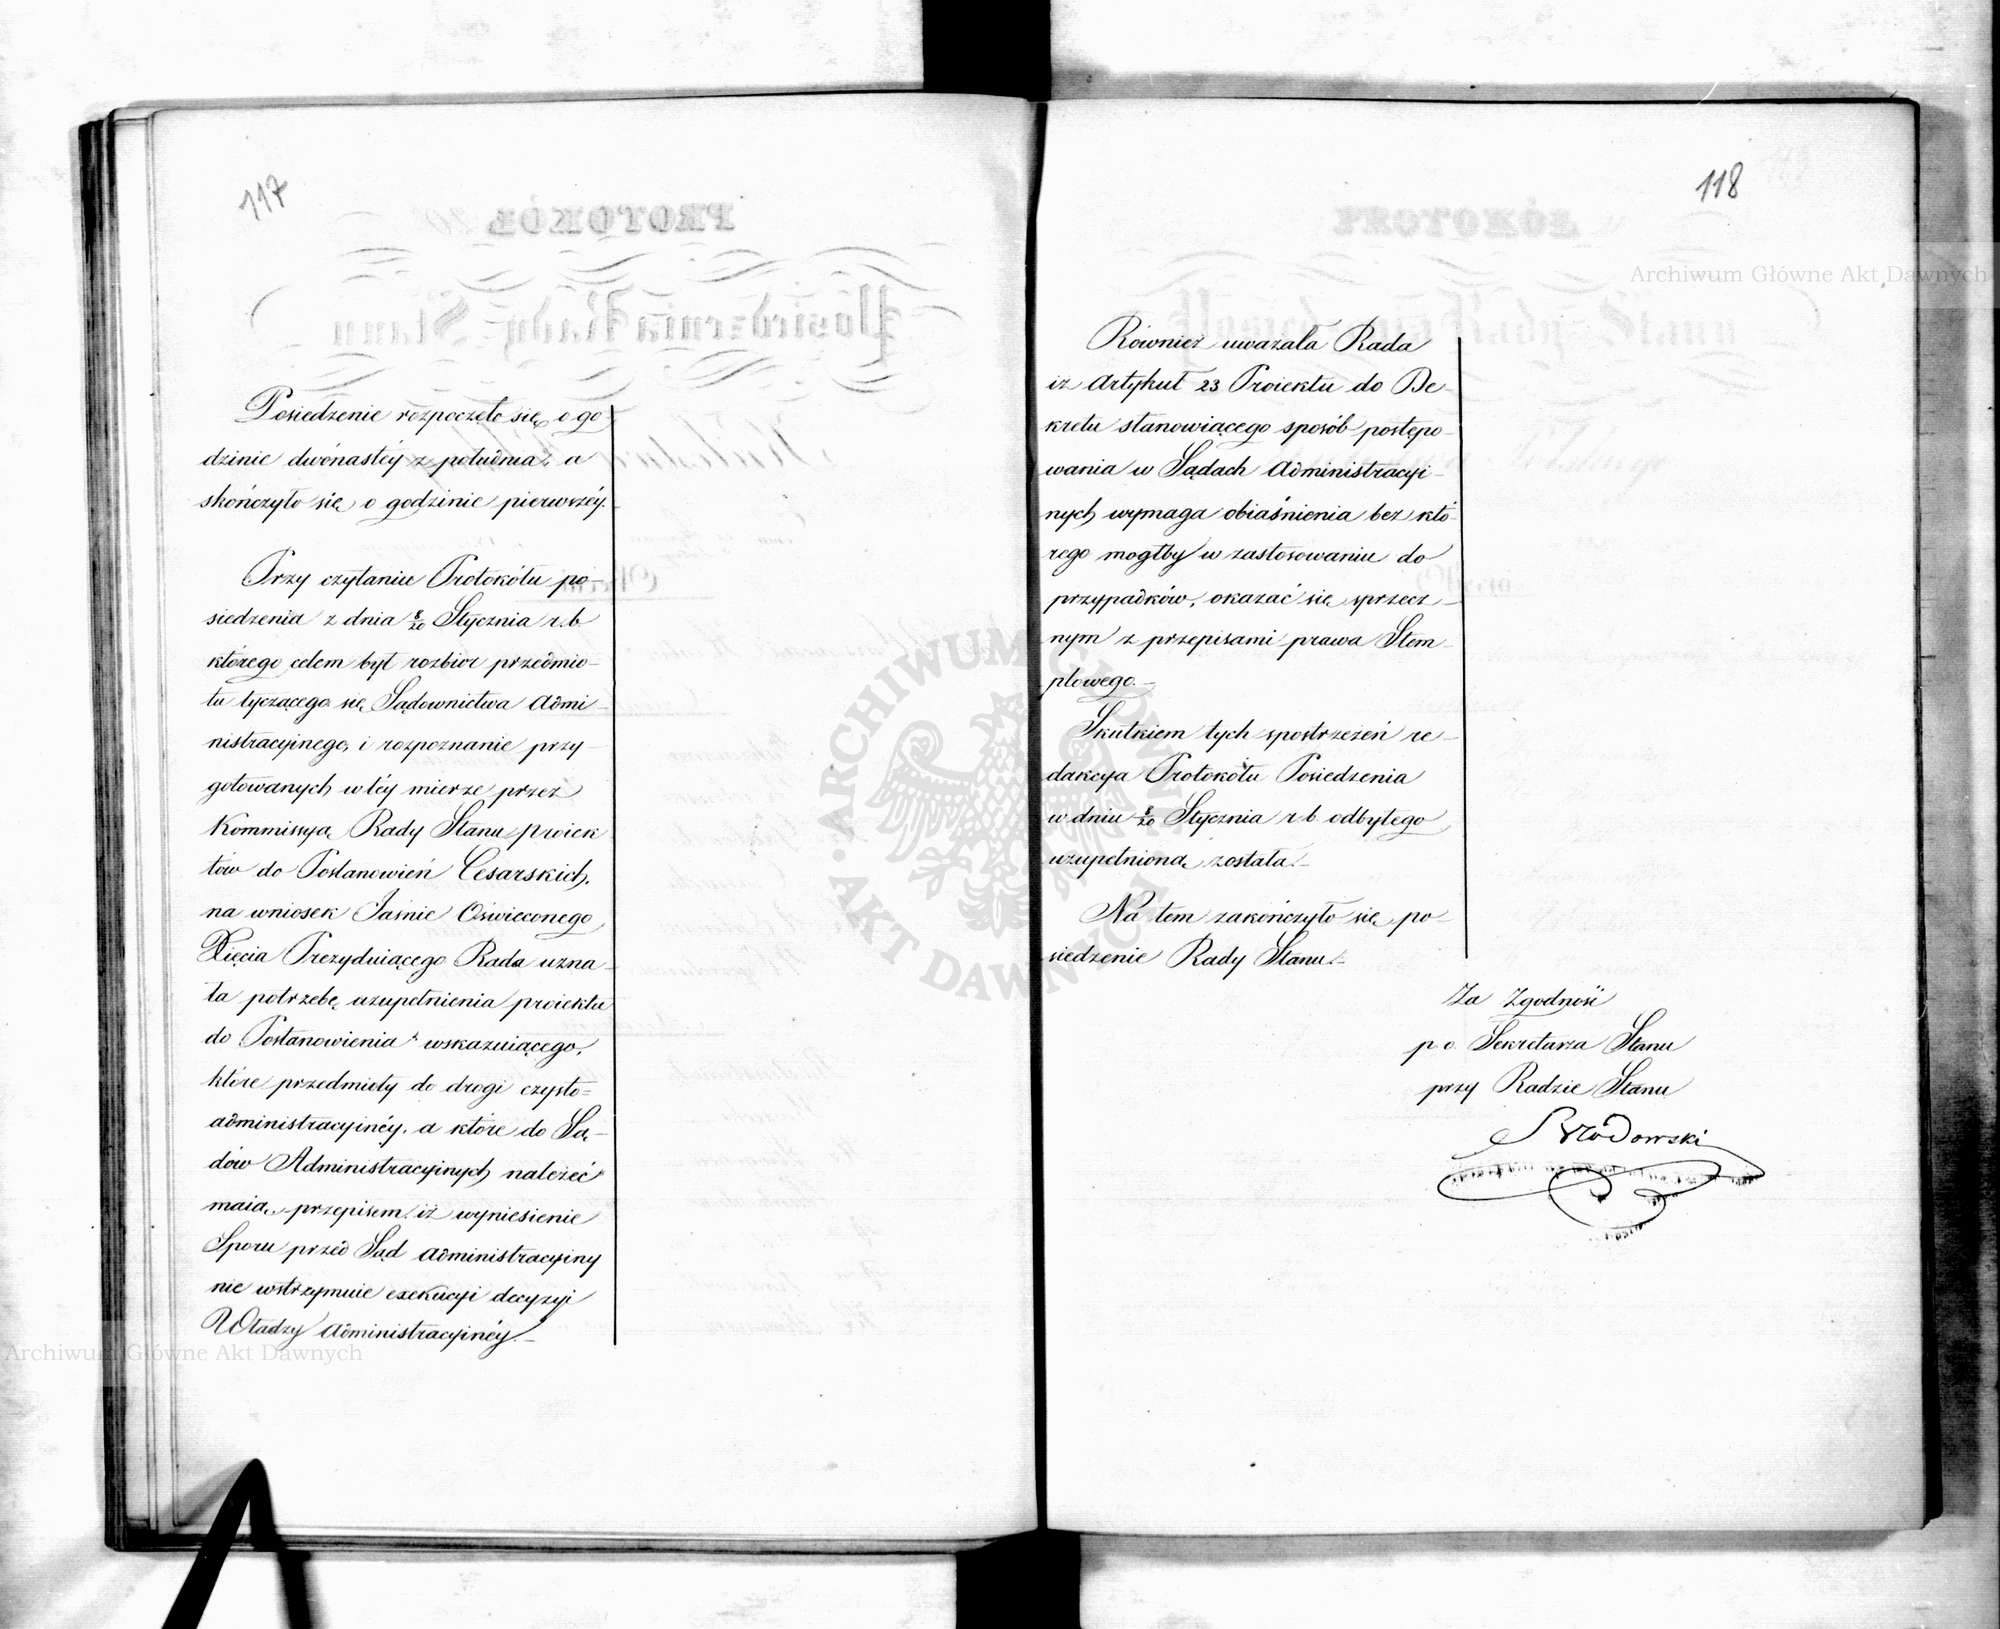 117
Posiedzenie rozpoczęło się o go-
dzinie dwónastéy z południa, a
skończyło się o godzinie pierwszéy.
Przy czytaniu Protokółu po-
siedzenia z dnia 8/20 Stycznia r. b.
którego celem był rozbiór przedmio-
tu tyczącego się Sądownictwa Admi-
nistracyinego, i rozpoznanie przy-
gotowanych w téy mierze przez
Kommissyą Rady Stanu proiek
tów do Postanowień Cesarskich,
na wniosek Jaśnie Oświeconego
Xięcia Prezyduiącego Rada uzna-
ła potrzebę uzupełnienia proiektu
do Postanowienia wskazuiącego,
które przedmioty do drogi czysto=
administracyinéy, a które do Są-
dów Administracyinych należeć
maią, przepisem iż wyniesienie
Sporu przed Sąd administracyiny
nie wstrzymuie exekucyi decyzyi
Władzy Administracyinéy.-
118
Również uważała Rada
iż Artykuł 23 Proiektu do De-
kretu stanowiącego sposób postępo-
wania w Sądach Administracyi-
nych wymaga obiaśnienia bez któ-
rego mógłby w zastosowaniu do
przypadków, okazać się sprzecz-
nym z przepisami prawa Stem-
plowego.-
Skutkiem tych spostrzeżeń re-
dakcya Protokółu Posiedzenia
w dniu 8/20 Stycznia r. b. odbytego
uzupełnioną została.-
Na tem zakończyło się po-
siedzenie Rady Stanu.-
Za Zgodność
p. o. Sekretarza Stanu
przy Radzie Stanu
Archiwum Główne Akt Dawnych
Archiwum Główne Akt Dawnych
ARCHIWUM GŁÓWNE AKT DAWNYCH